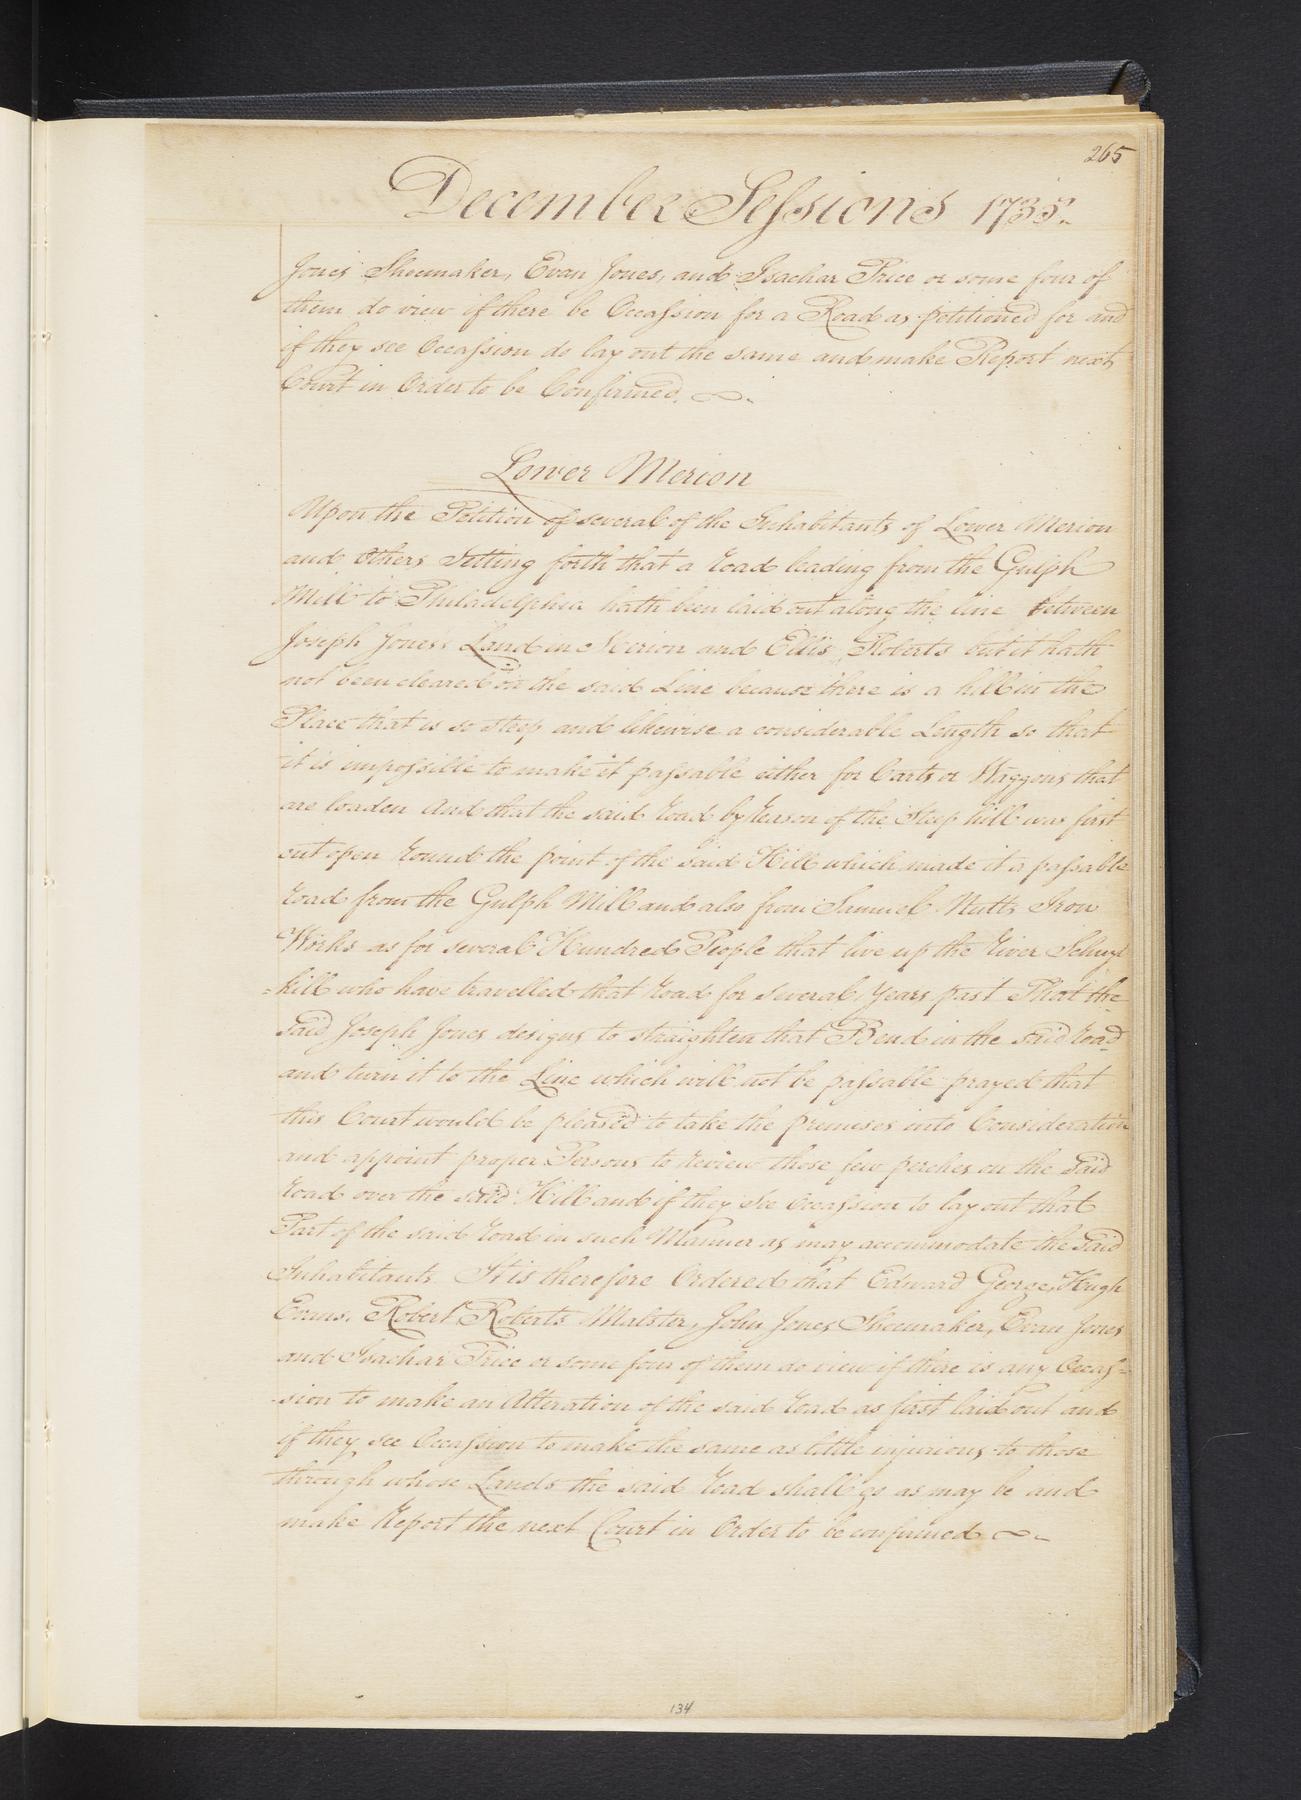 265
December Sessions 1735.
Jones Shoemaker, Evan Jones, and Isachar Price or some four of
them do view if there be Occassion for a Road as petitioned for and
if they see Occassion do lay out the same and make Report next
Court in Order to be Confirmed.
Lower Merion
Upon the Petition of several of the Inhabitants of Lower Merion
and others Setting forth that a road leading from the Gulph
Mill to Philadelphia hath been laid out along the line between
Joseph Jones's Land in Merion and Ellis Roberts but it hath
not been cleared on the said Line because there is a hill in the
Place that is so steep and likewise a considerable Length so that
it is impossible to make it passable either for Carts or Waggons that
are loaden And that the said road by reason of the Steep hill was first
cut open round the point of the said Hill which made it a passable
road from the Gulph Mill and also from Samuel Nutts Iron
Works as for several Hundred People that live up the river Schuyl
=kill who have travelled that road for several Years past That the
said Joseph Jones designs to straighten that Bend in the said road
and turn it to the Line which will not be passable prayed that
this Court would be pleased to take the premises into Consideration
and appoint proper Persons to review those few perches on the said
road over the said Hill and if they see Occassion to lay out that
Part of the said road in such Manner as may accommodate the said
Inhabitants It is therefore Ordered that Edward George, Hugh
Evans, Robert Roberts Malster, John Jones Shoemaker, Evan Jones
and Isachar Price or some four of them do view if there is any Occas=
-sion to make an Alteration of the said road as first laid out and
if they see Occassion to make the same as little injurious to those
through whose Lands the said road shall go as may be and
make Report the next Court in Order to be confirmed
134